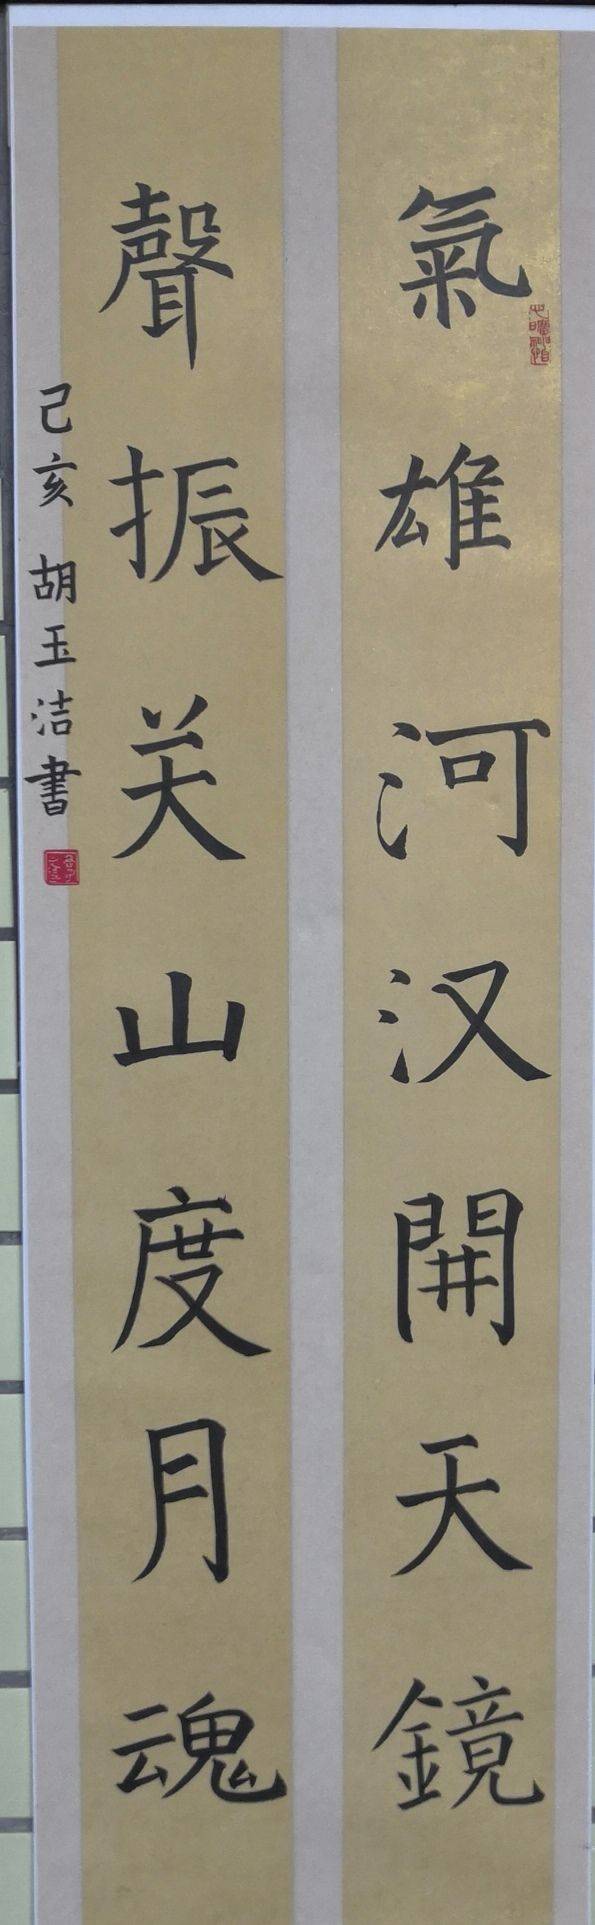 氣雄河汉開天鏡
聲振关山度月魂
己亥 胡玉洁書